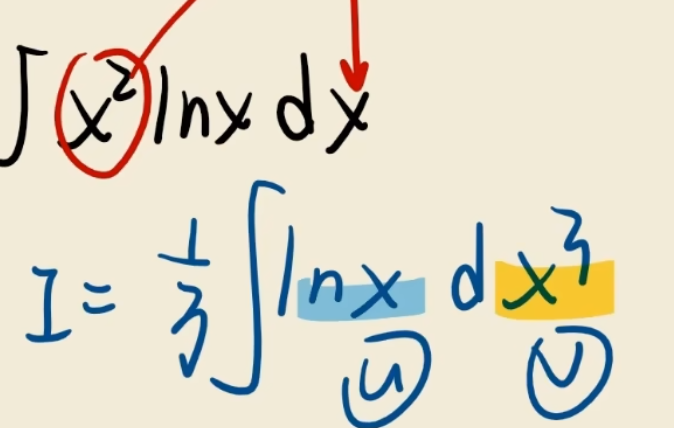 ∫ x² lnx dx
I = 1/3 ∫ lnx dx³
u v